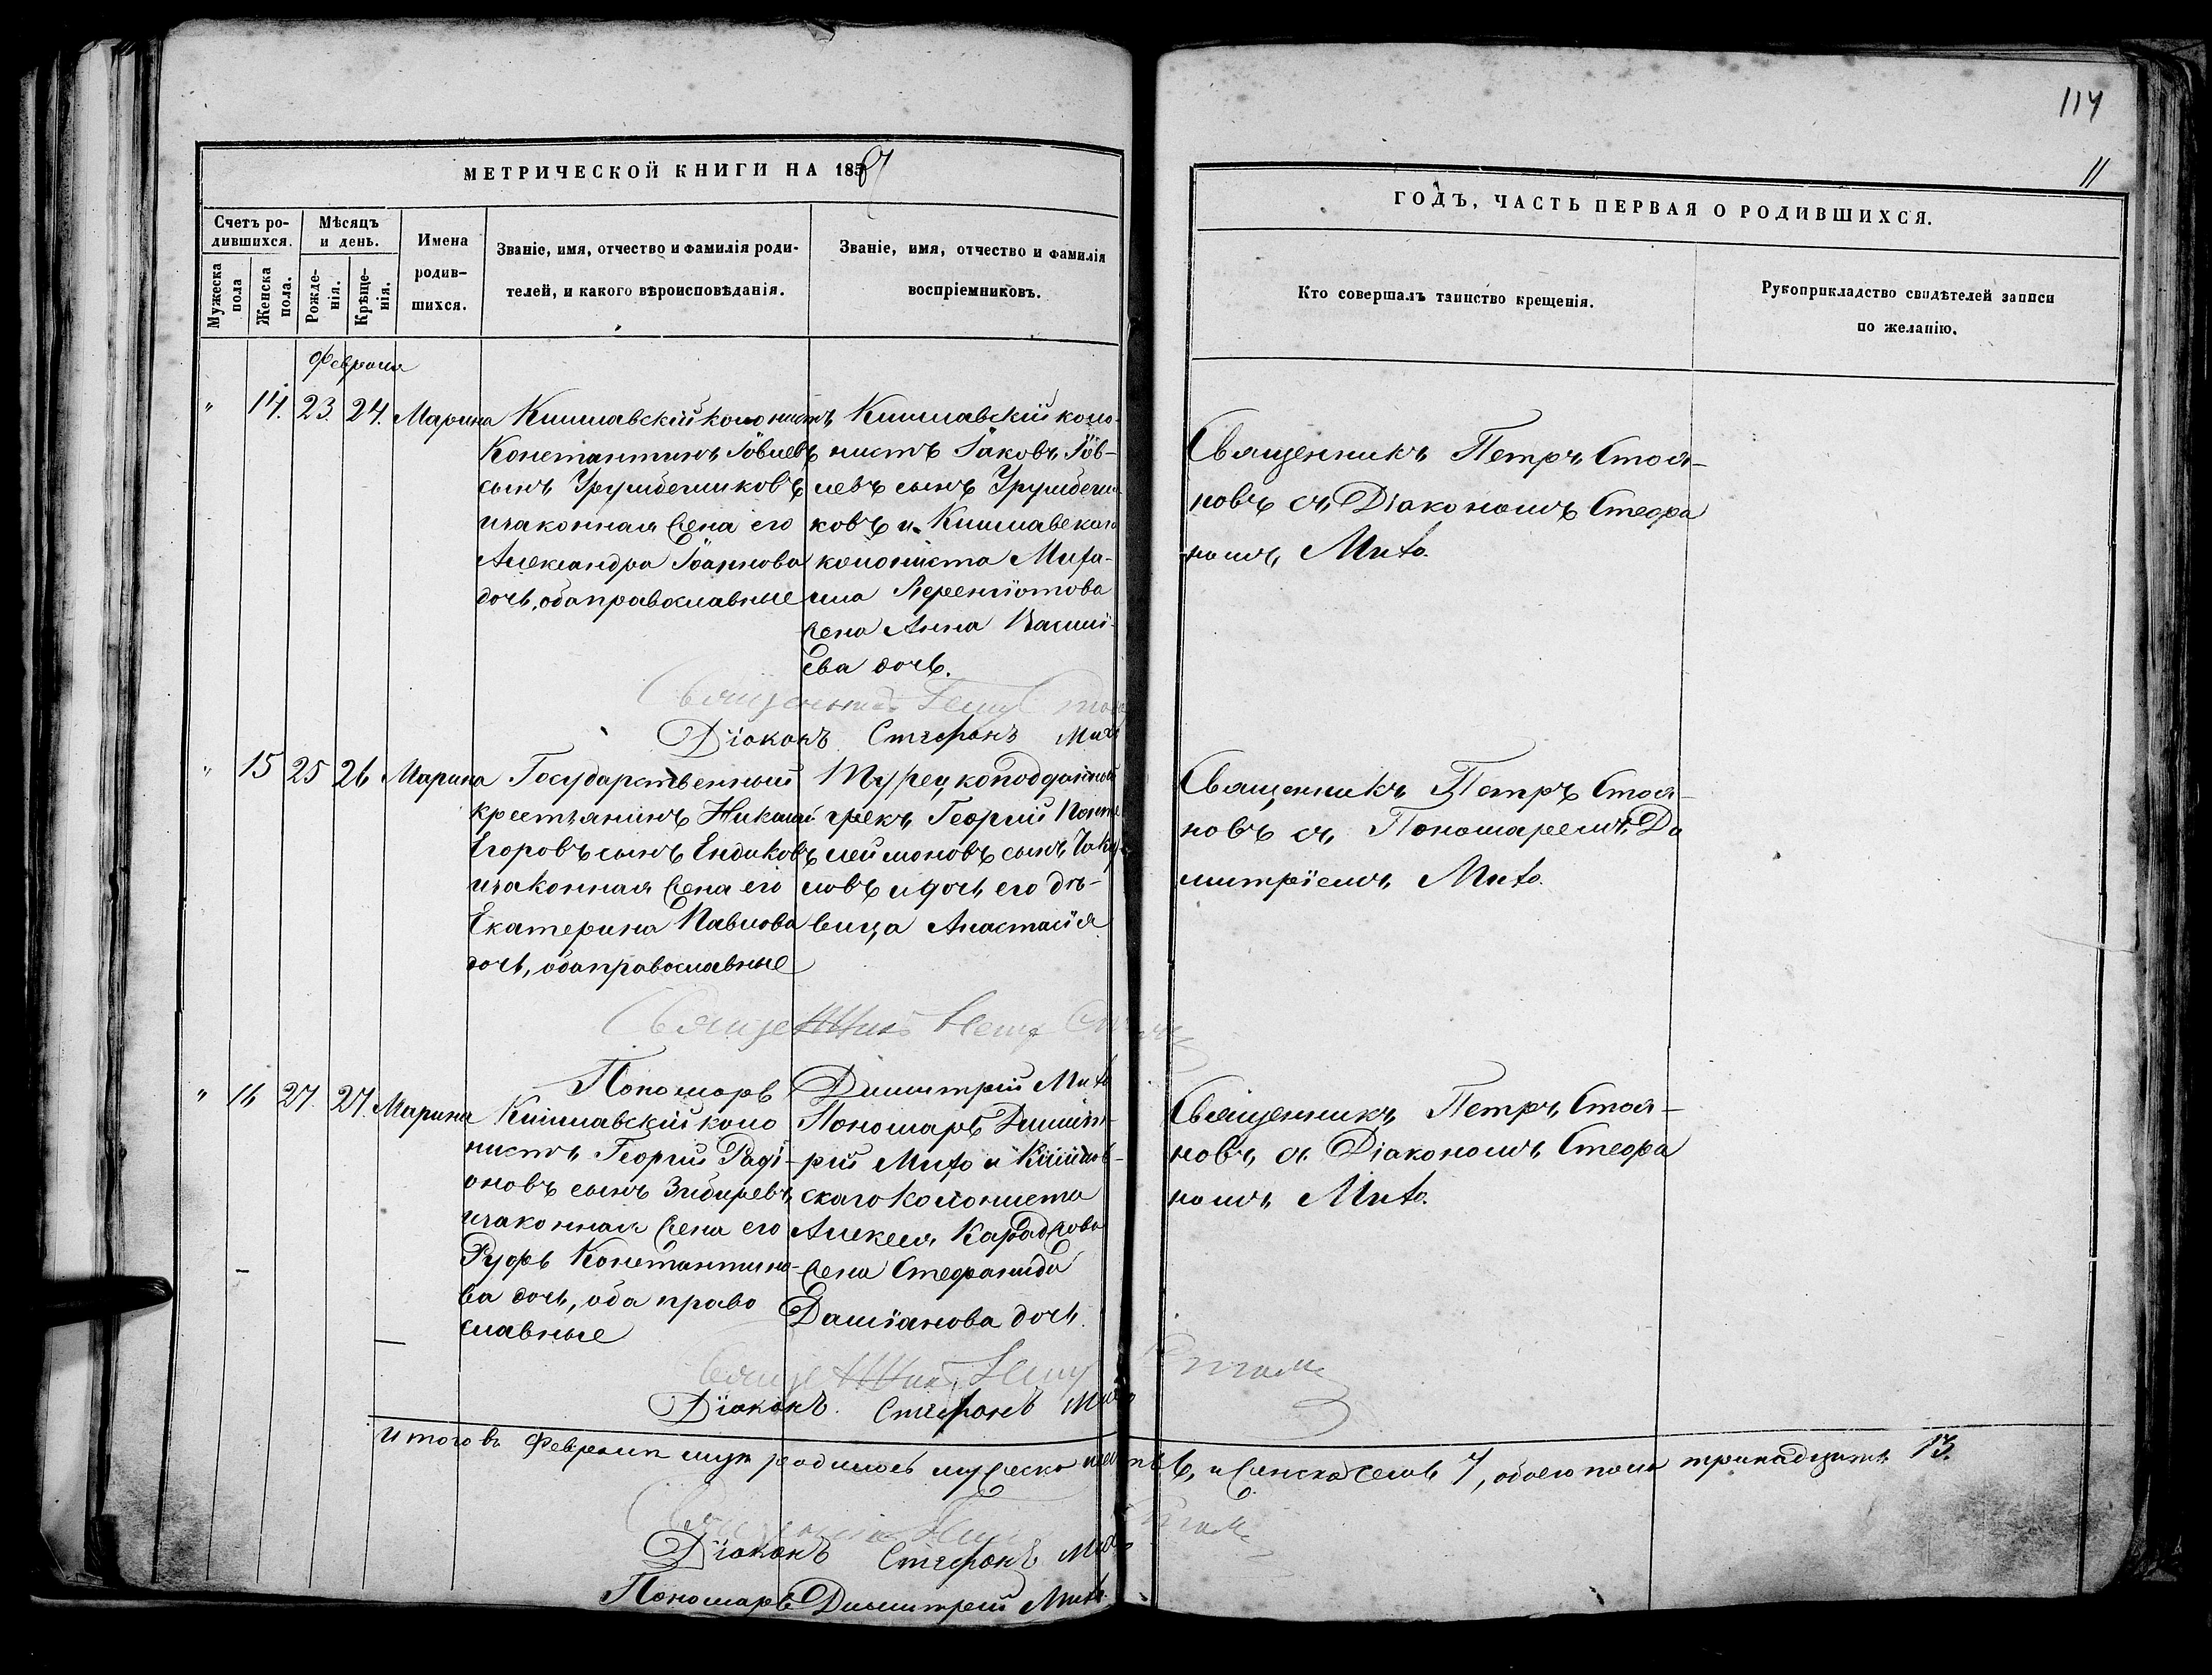 114
11
МЕТРИЧЕСКОЙ КНИГИ НА 185
ГОДЪ, ЧАСТЬ ПЕРВАЯ О РОДИВШИХСЯ.
Счетъ ро-
дившихся.
Мужеска пола
Женска пола.
Мѣсяцъ
и день.
Рожде-
нія.
Крѣще-
нія.
Имена
родив-
шихся.
Званіе, имя, отчество и фамилія роди-
телей, и какого вѣроисповѣданія.
Званіе, имя, отчество и фамилія
воспріемниковъ.
Кто совершалъ таинство крещенія.
Рукоприкладство свидѣтелей записи
по желанію.
Февраля
" 14. 23. 24. Марина
Кишлавскій колонистъ
Константинъ Іовлевъ
сынъ
изаконная жена его
Александра Іоаннова
дочь, оба православные
Кишлавскій коло-
нистъ Іаковъ Іов-
левъ сынъ
ковъ и Кишлавскаго
колониста Миха-
ила
жена Анна Василі-
ева дочь.
Священникъ Петръ Стоя-
новъ съ Діакономъ Стефа
номъ Мито.
Діаконъ Стефанъ
" 15 25 26 Марина
Государственный
крестьянинъ Николай
Егоровъ сынъ Ендиковъ
изаконная жена его
Екатерина Павлова
дочь, оба православные
Турецкоподданный
грекъ Георгій Панте
леймоновъ сынъ
ловъ и дочь его дѣ-
вица Анастасія
Священникъ Петръ Стоя-
новъ съ Пономаремъ Ди
митріемъ Мито.
Пономарь Димитрій Мито
" 16 27. 27. Марина
Кишлавскій коло
нистъ Георгій Раді-
оновъ сынъ Зибиревъ
изаконная жена его
Руфь Константино-
ва дочь, оба право
славные
Пономарь Димит-
рій Мито и Кишлав-
скаго колониста
Алексея
жена Стефанида
Даміанова дочь.
Священникъ Петръ Стоя-
новъ съ Діакономъ Стефа
номъ Мито.
Діаконъ Стефанъ
Итого въ Февралѣ м-цѣ родилось мужеска 6, и женска семь 7, обоего пола тринадцать 13.
Діаконъ Стефанъ
Пономарь Димитрій Мито